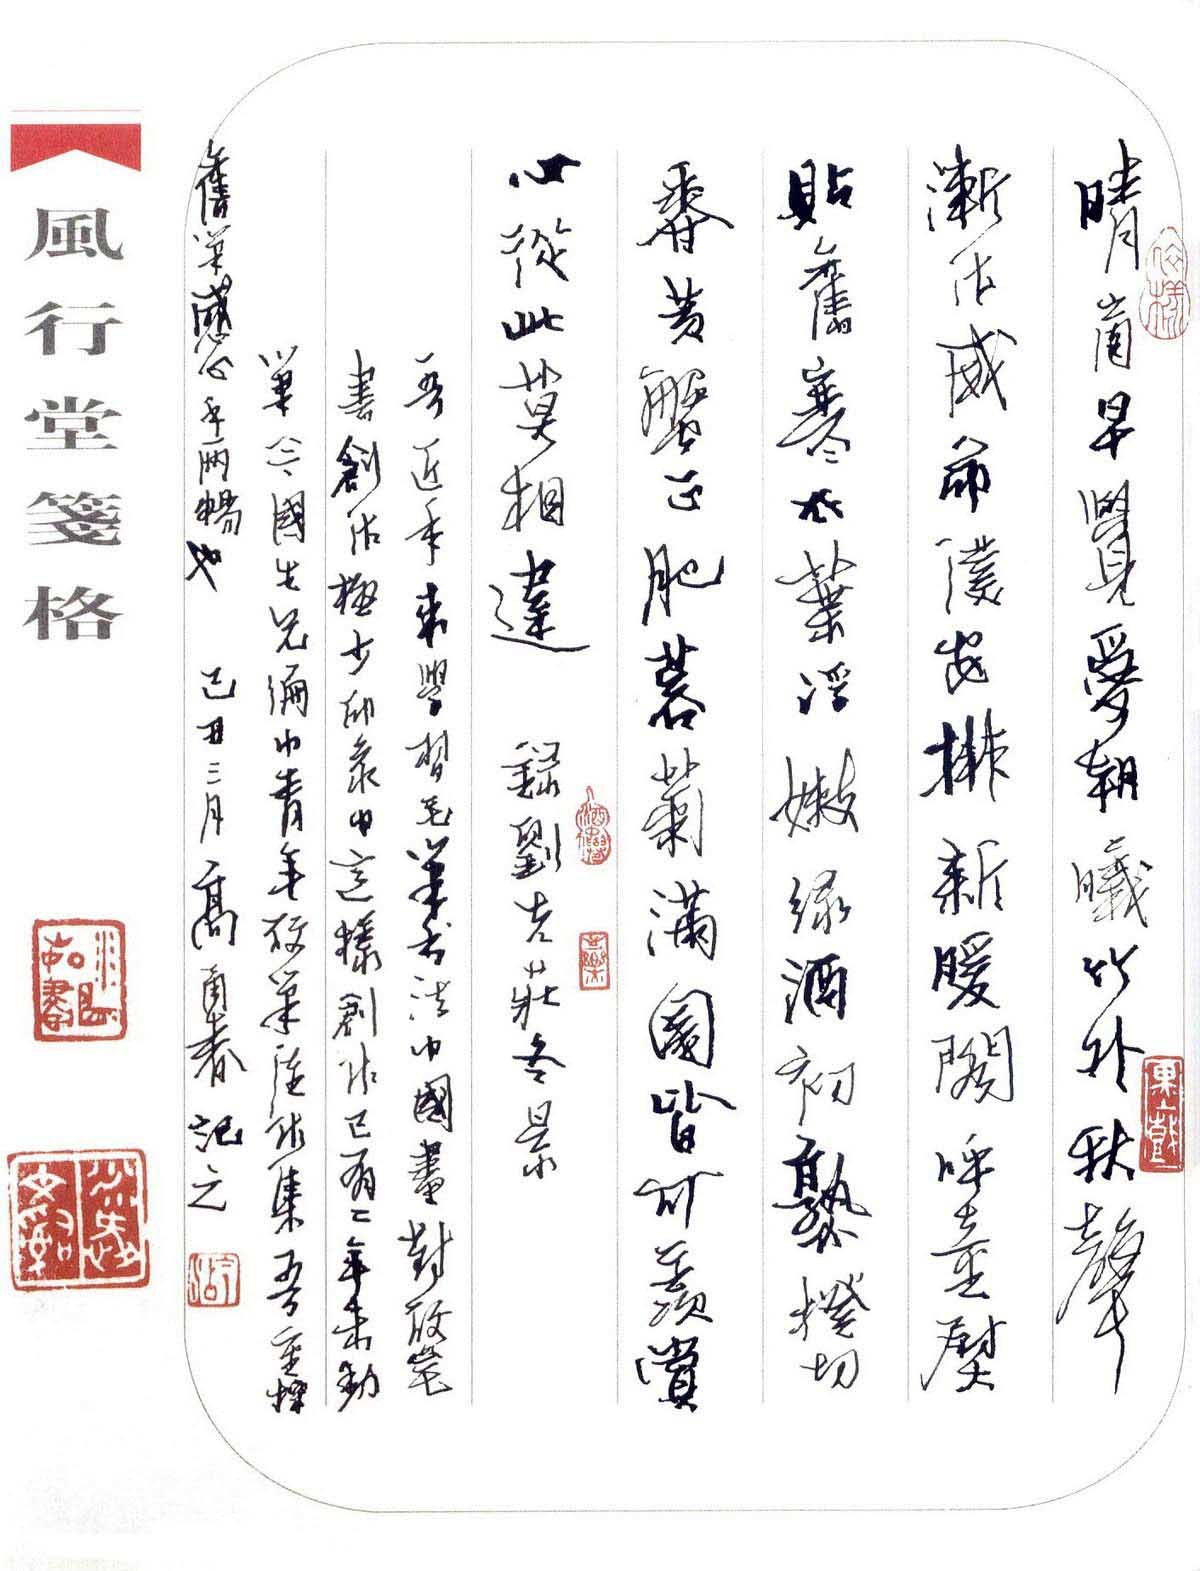 晴窗早覺愛朝曦竹外秋聲
漸作威命僕安排新暖閣呼童熨
貼舊寒衣葉浮嫩綠酒初熟橙切
香黃蟹正肥蓉菊滿園皆可羨賞
心從此莫相違 錄劉克莊冬景
吾近年來學習毛筆書法中國畫對硬筆
書創作極少印象中這樣創作已有二年未動
筆今國生兄編中青年硬筆作集吾重操
舊筆感心手兩暢也 己丑三月高甬春記之
風行堂箋格